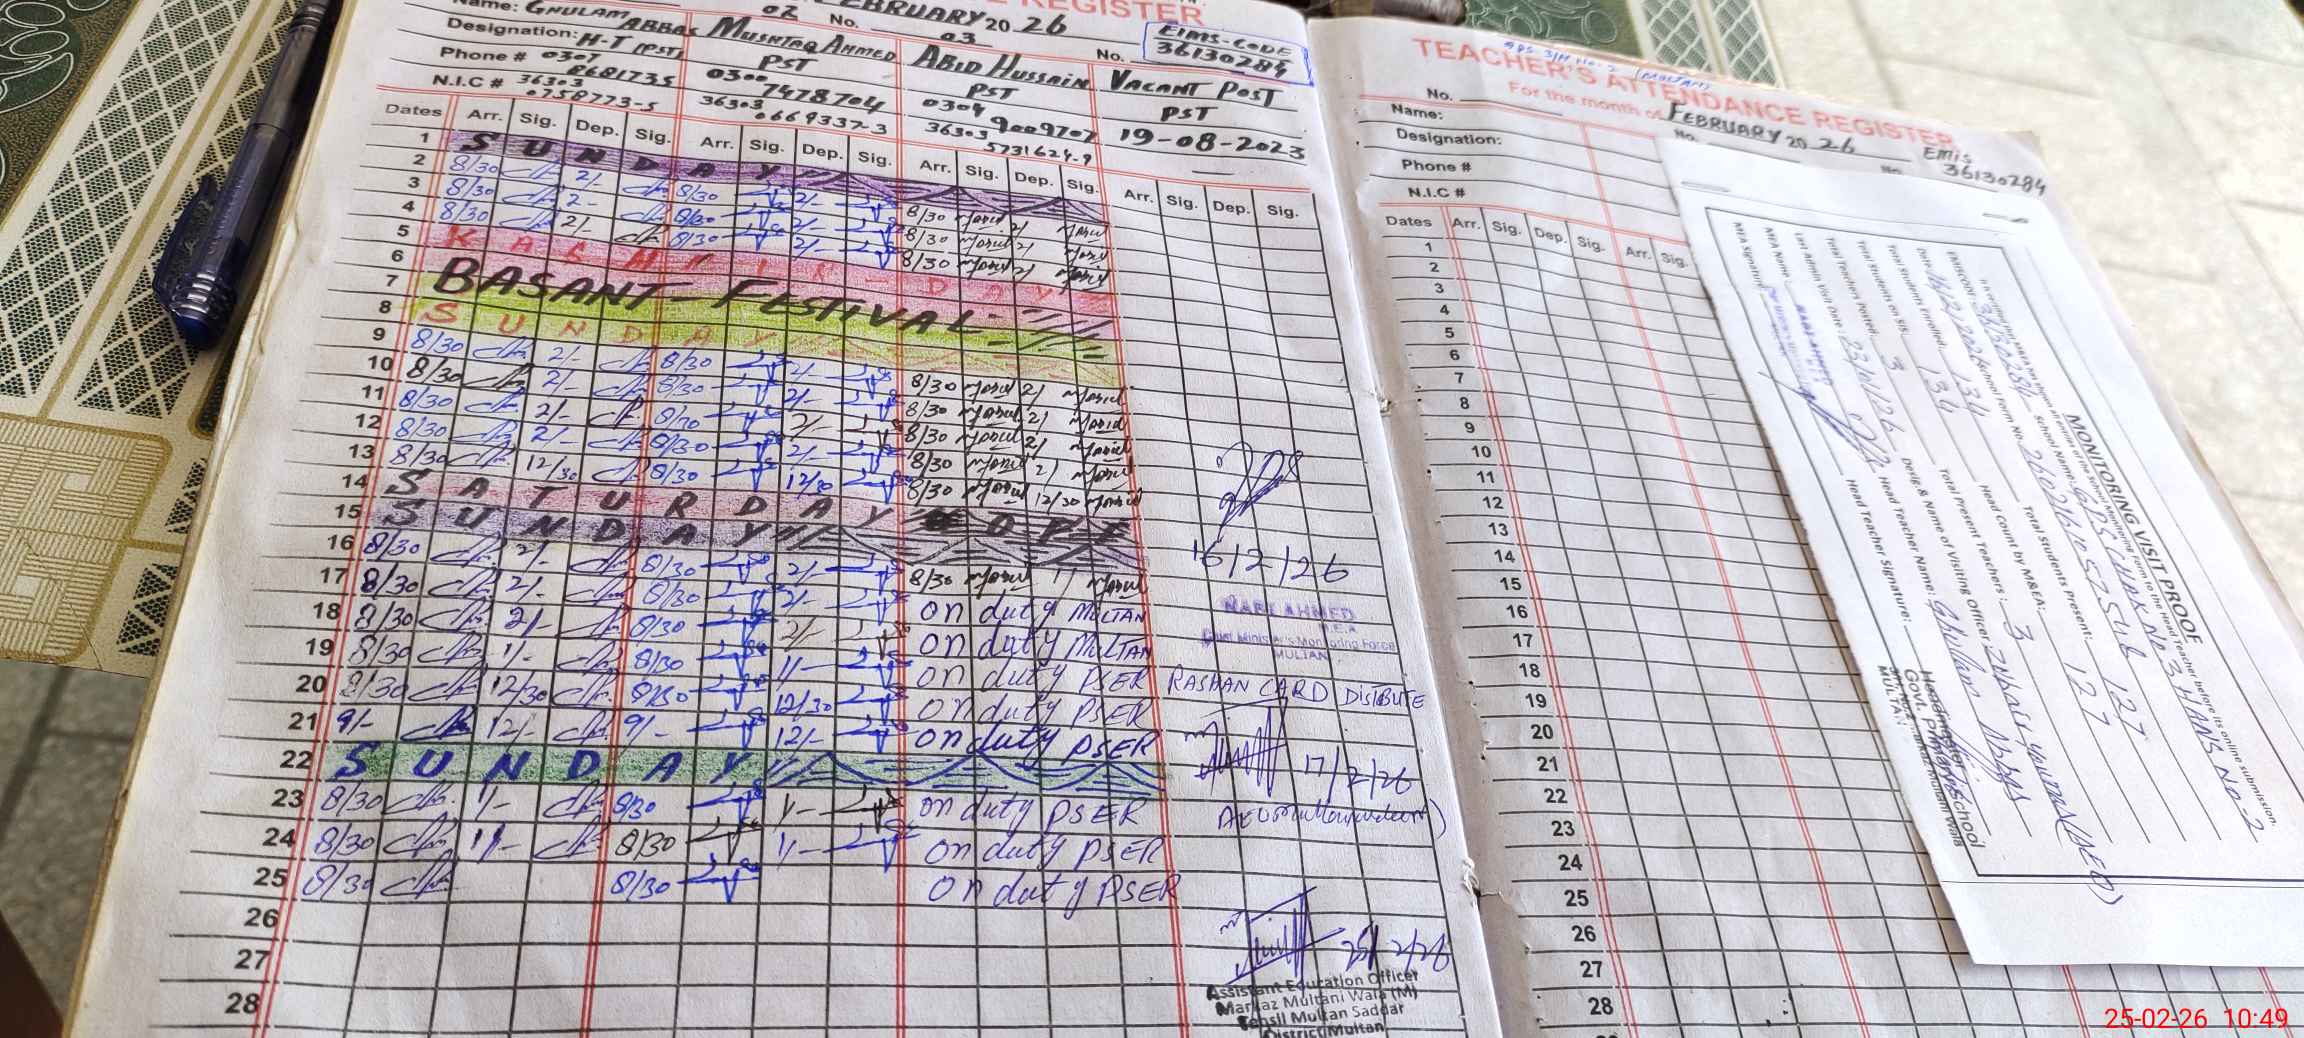 E REGISTER
Name: GHULAM ABBAS
02
FEBRUARY 20 26
No. 03
No.
EIMS-CODE
36130284
Designation: H-T (PST)
MUSHTAQ AHMED
PST
ABID HUSSAIN
PST
VACANT POST
PST
Phone # 0307
8681735
0300
7478704
0304
9009707
19-08-2023
N.I.C # 36303
0758773-5
36303
0669337-3
36303
5731624-9
Dates Arr. Sig. Dep. Sig. Arr. Sig. Dep. Sig. Arr. Sig. Dep. Sig. Arr. Sig. Dep. Sig.
1 SUNDAY
2 8/30 2/- 8/30 2/- 8/30 2/
3 8/30 2- 8/30 2/- 8/30 2/
4 8/30 2/- 8/30 2/- 8/30 2/
5 KASHMIR - DAY
6 BASANT - FESTIVAL
7
8 SUNDAY
9 8/30 2/- 8/30 2/- 8/30 2/
10 8/30 2/- 8/30 2/- 8/30 2/
11 8/30 2/- 8/30 2/- 8/30 2/
12 8/30 2/- 8/30 2/- 8/30 2/
13 8/30 12/30 8/30 12/30 8/30 12/30
14 SATURDAY
15 SUNDAY
16 8/30 2/- 8/30 2/- 8/30 1/
17 8/30 2/- 8/30 2/- on duty MULTAN
18 8/30 2/- 8/30 2/- on duty MULTAN
19 8/30 1/- 8/30 1/- on duty PSER RASHAN CARD DISTRIBUTE
20 8/30 12/30 8/30 12/30 on duty PSER
21 9/- 12/- 9/- 12/- on duty PSER
22 SUNDAY
23 8/30 1/- 8/30 1/- on duty PSER
24 8/30 1/- 8/30 1/- on duty PSER
25 8/30 8/30 on duty PSER
26
27
28
16/2/26
RABI AHMED
M.E.A
Chief Minister's Monitoring Force
MULTAN
17/2/26
25/2/26
Assistant Education Officer
Markaz Multani Wala (M)
Tehsil Multan Saddar
District Multan
TEACHER'S ATTENDANCE REGISTER
For the month of FEBRUARY 20 26
No.
No.
No.
Emis
36130284
Name:
Designation:
Phone #
N.I.C #
Dates Arr. Sig. Dep. Sig. Arr. Sig.
1
2
3
4
5
6
7
8
9
10
11
12
13
14
15
16
17
18
19
20
21
22
23
24
25
26
27
28
MONITORING VISIT PROOF
EMIS CODE: 36130284 School Name: GPS CHAK NO 3 HANS NO-2
Total Students Enrolled: 134
Total Students Present: 127
Total Students on SIS: 134
Head Count by M&EA: 127
Total Teachers Posted: 3
Total Present Teachers: 3
Last Admin Visit Date: 23/01/26
Desig & Name of Visiting Officer:
MEA Name:
Head Teacher Name: Ghulam Abbas
MEA Signature:
Head Teacher Signature:
Govt. Primary School
25-02-26 10:49